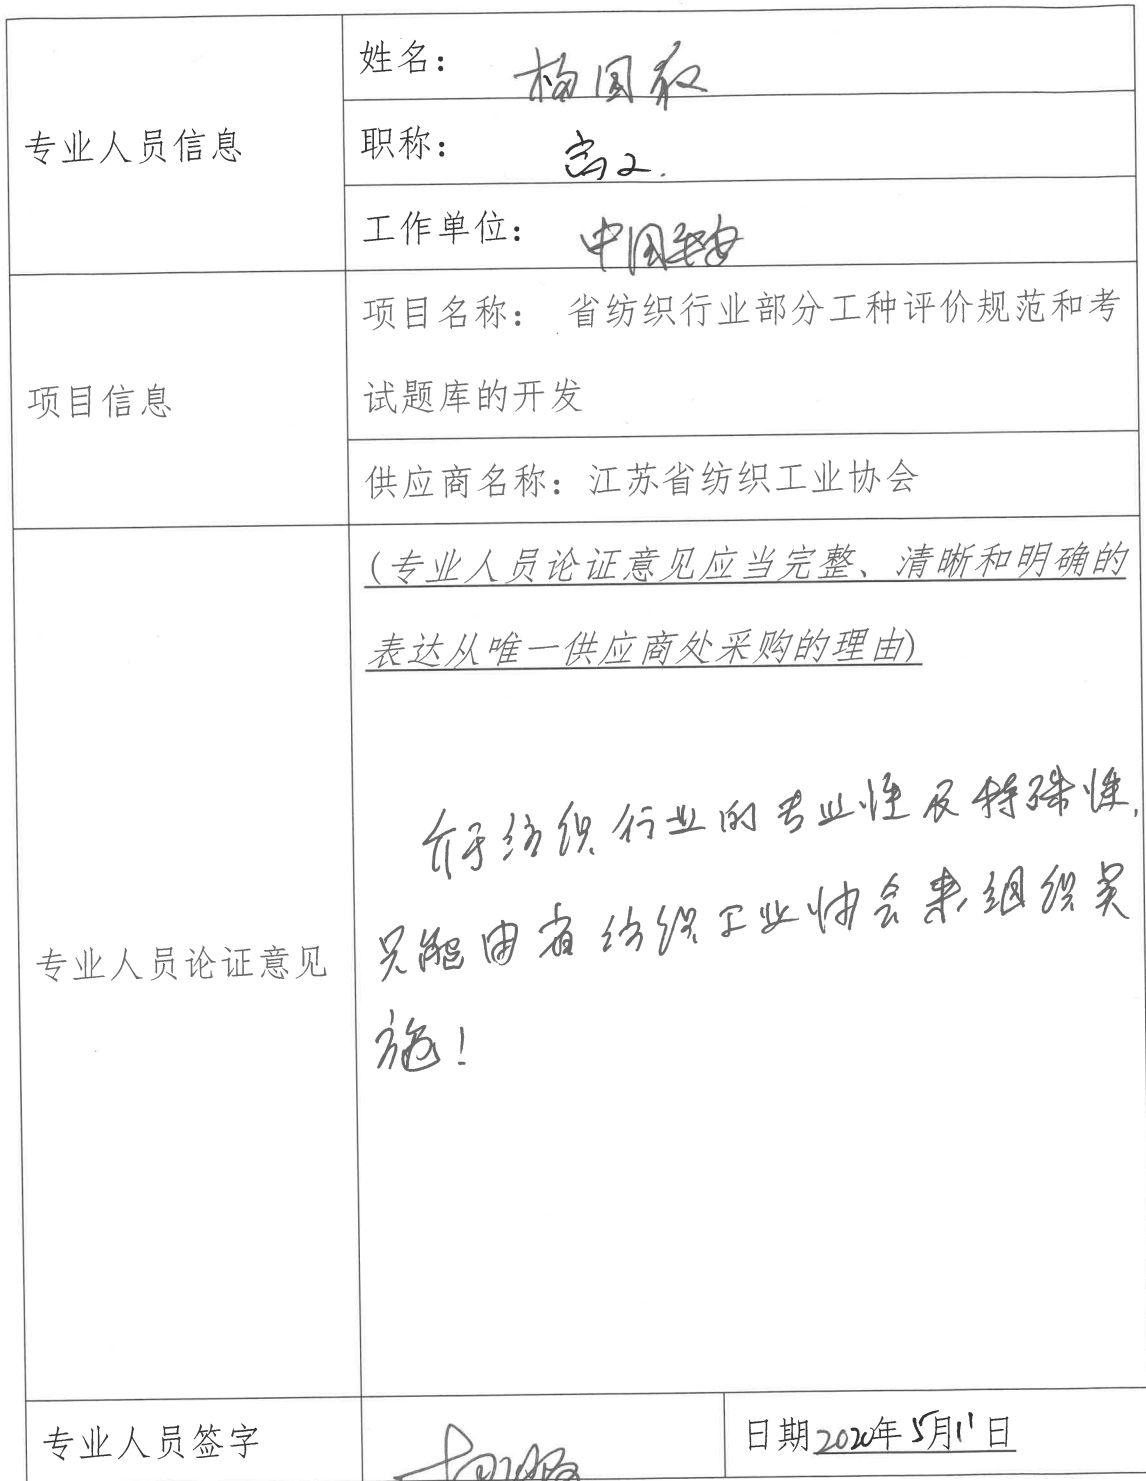 专业人员信息
姓名：
职称：高工.
工作单位：中国平安
项目信息
项目名称： 省纺织行业部分工种评价规范和考
试题库的开发
供应商名称：江苏省纺织工业协会
专业人员论证意见
(专业人员论证意见应当完整、清晰和明确的
表达从唯一供应商处采购的理由)
介于纺织行业的专业性及特殊性,
只能由省纺织工业协会来组织实
施!
专业人员签字
日期2020年5月11日